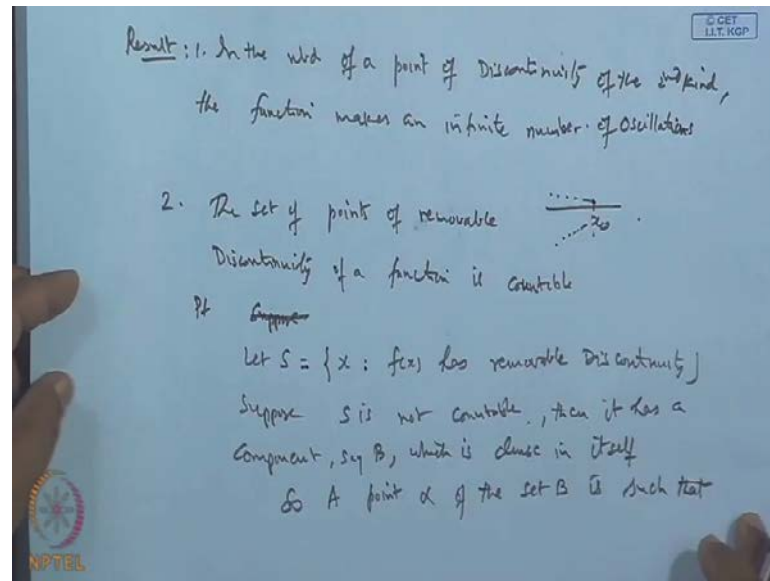 © CET
I.I.T. KGP
Result: 1. In the nbd of a point of Discontinuity of the 2nd kind,
the function makes an infinite number of Oscillations
2. The set of points of removable
x0
Discontinuity of a function is countable
Pf Suppose
Let S = {x : f(x) has removable Discontinuity}
Suppose S is not countable, then it has a
Component, say B, which is dense in itself
So A point α of the set B is such that
NPTEL